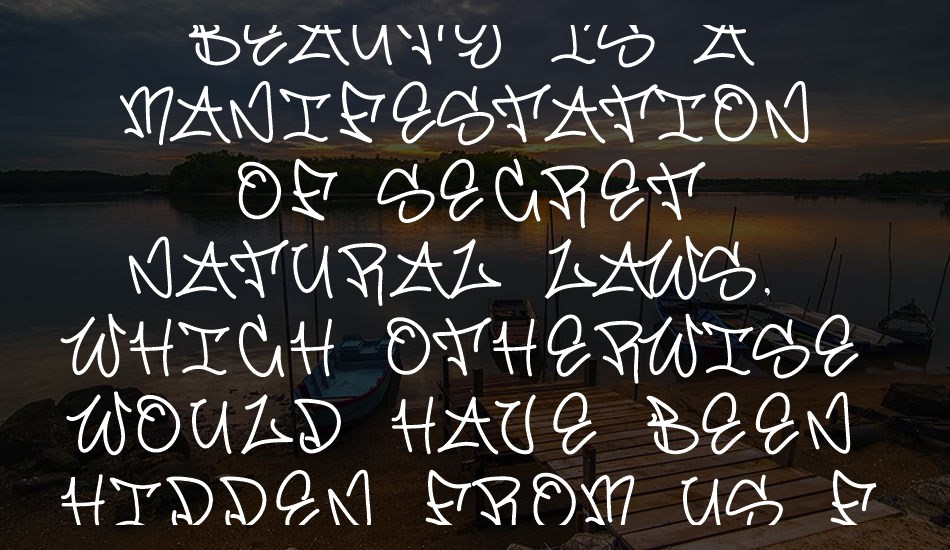 BEAUTY IS A
MANIFESTATION
OF SECRET
NATURAL LAWS,
WHICH OTHERWISE
WOULD HAVE BEEN
HIDDEN FROM US F